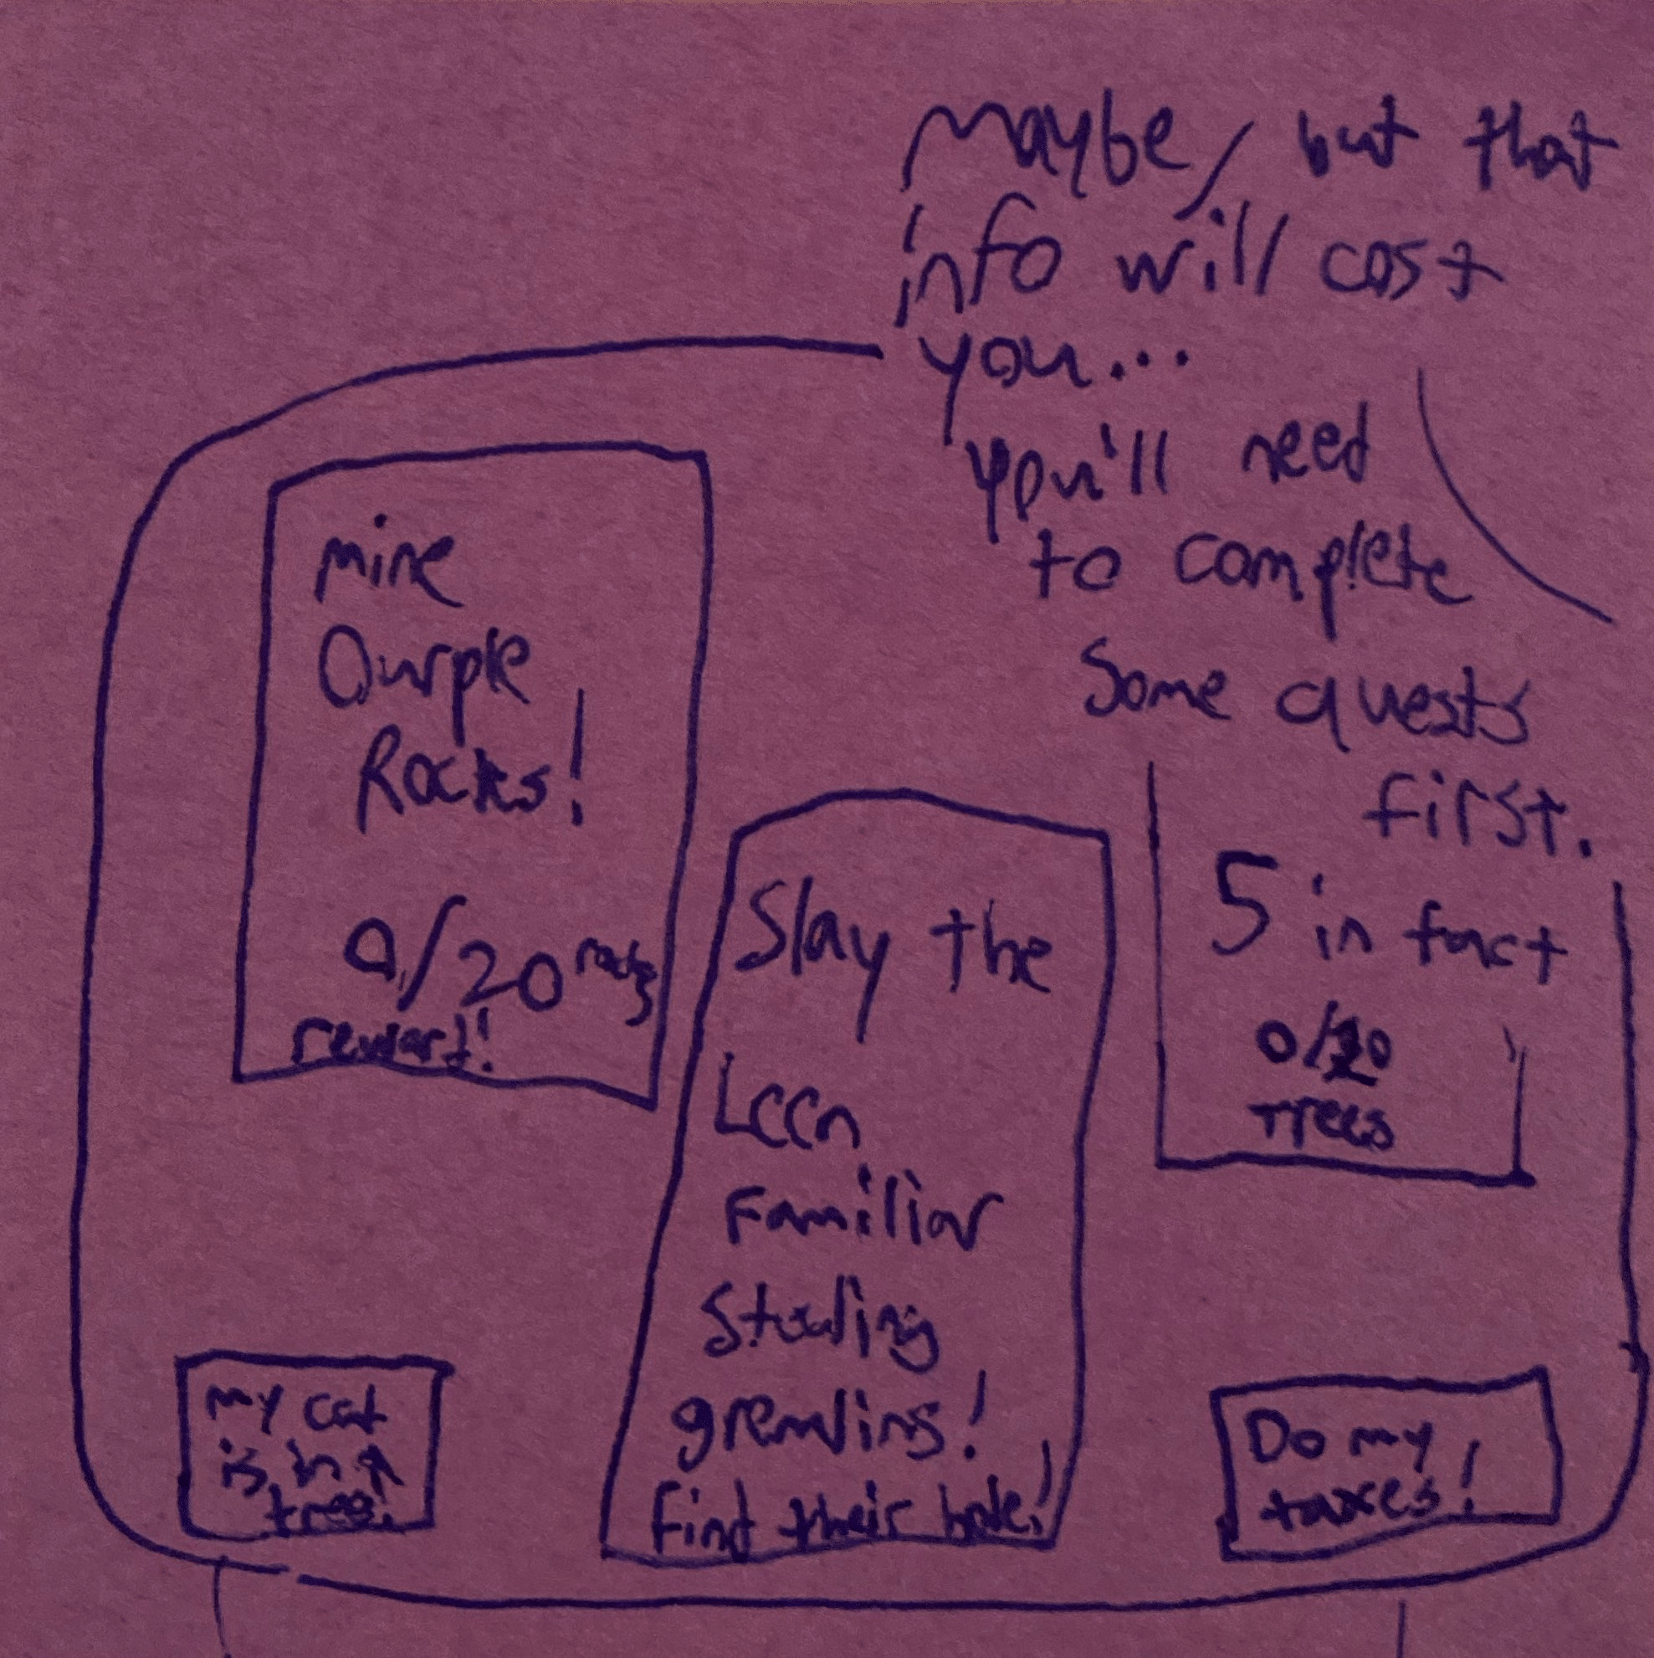 maybe, but that
info will cost
you...
you'll need
to complete
some quests
first.
5 in fact
0/20
Trees
mine
Ourple
Rocks!
0/20 rocks
reward!
Slay the
Familiar
Stealing
gremlins!
find their hole!
my cat
is in a
tree!
Do my
taxes!